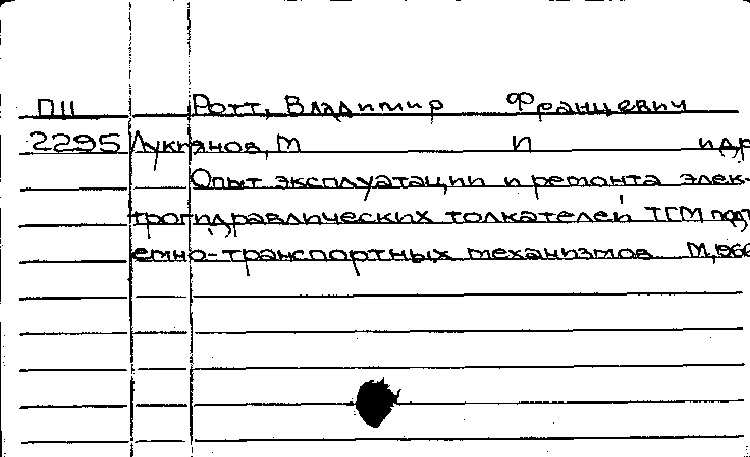 П11 Ротт, Владимир Францевич
2295 Лукьянов, М П идр
Опыт эксплуатации и ремонта элек-
трогидравлических толкателей ТГМ подъ
емно-транспортных механизмов М, 1966